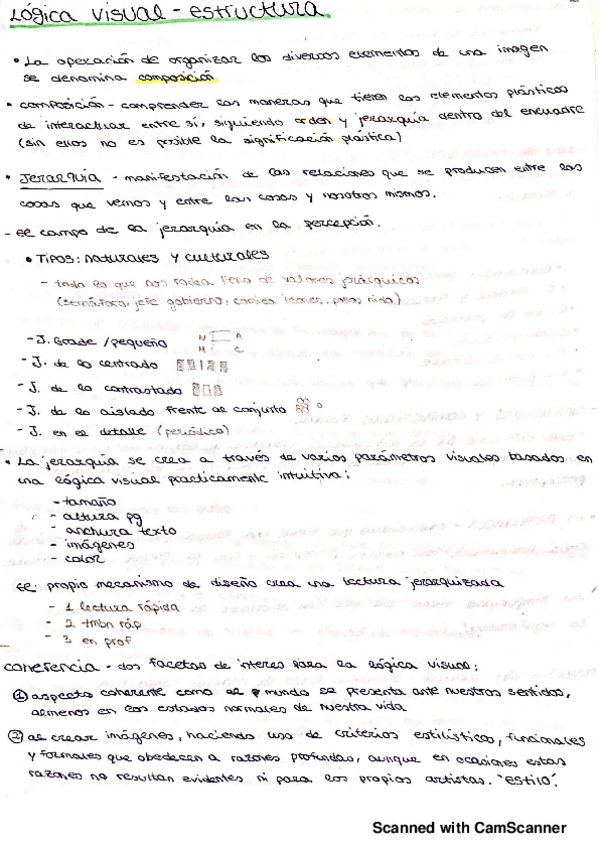 Lógica visual - estructura
• La operación de organizar los diversos elementos de una imagen
se denomina composición
• composición - comprender las maneras que tienen los elementos plásticos
de interactuar entre sí, siguiendo orden y jerarquía dentro del encuadre
(sin ellos no es posible la significación plástica)
• Jerarquía - manifestación de las relaciones que se producen entre las
cosas que vemos y entre las cosas y nosotros mismos.
- el campo de la jerarquía en la percepción.
• TIPOS: naturales y culturales
- todo lo que nos rodea lleno de valores jerárquicos
(semáforo, jefe gobierno, comida
- J. Grade / pequeño
- J. de lo centrado
- J. de lo contrastado
- J. de lo aislado frente al conjunto
- J. en el detalle (periódico)
• La jerarquía se crea a través de varios parámetros visuales basados en
una lógica visual practicamente intuitiva:
- tamaño
- altura pg
- anchura texto
- imágenes
- color
El propio mecanismo de diseño crea una lectura jerarquizada
- 1 lectura rápida
- 2 tmbn ráp
- 3 en prof
coherencia - dos facetas de interes para la lógica visual:
① aspecto coherente como el mundo se presenta ante nuestros sentidos,
almenos en los estados normales de nuestra vida
② al crear imágenes, haciendo uso de criterios estilísticos, funcionales
y formales que obedecen a razones profundas, aunque en ocasiones estas
razones no resultan evidentes ni para los propios artistas. "estilo".
Scanned with CamScanner